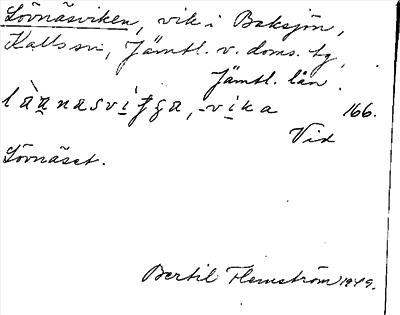 Lövnäsviken, vik i Baksjön,
Kalls sn, Jämtl. v. doms. tg,
Jämtl. län.
166.
Vid
Lövnäset.
Bertil Flemström 1949.